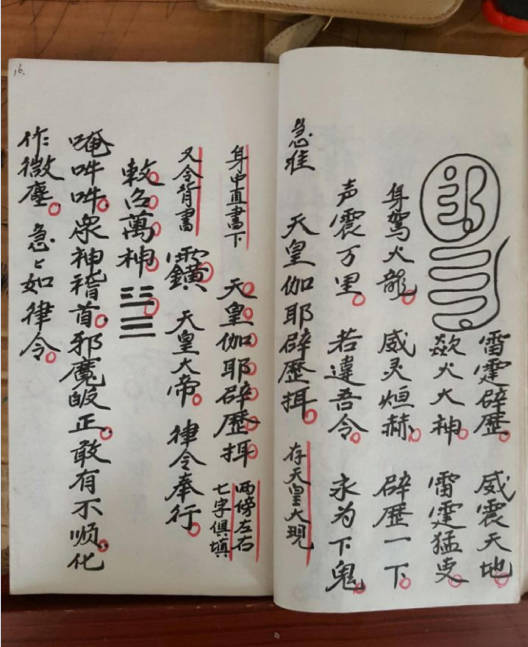 雷霆辟歷。威震天地。
欻火大神。雷霆猛吏。
身駕火龍。威灵烜赫。辟歷一下。
声震万里。若違吾令。永为下鬼
急准 天皇伽耶辟歷挕。存天皇大現
身中直書下 天皇伽耶辟歷挕 两傍左右
七字俱填
又令背書 天皇大帝 律令奉行。
敕召萬神
唵吽吽。眾神稽首。邪魔皈正。敢有不顺。化
作微塵。急々如律令。
16.